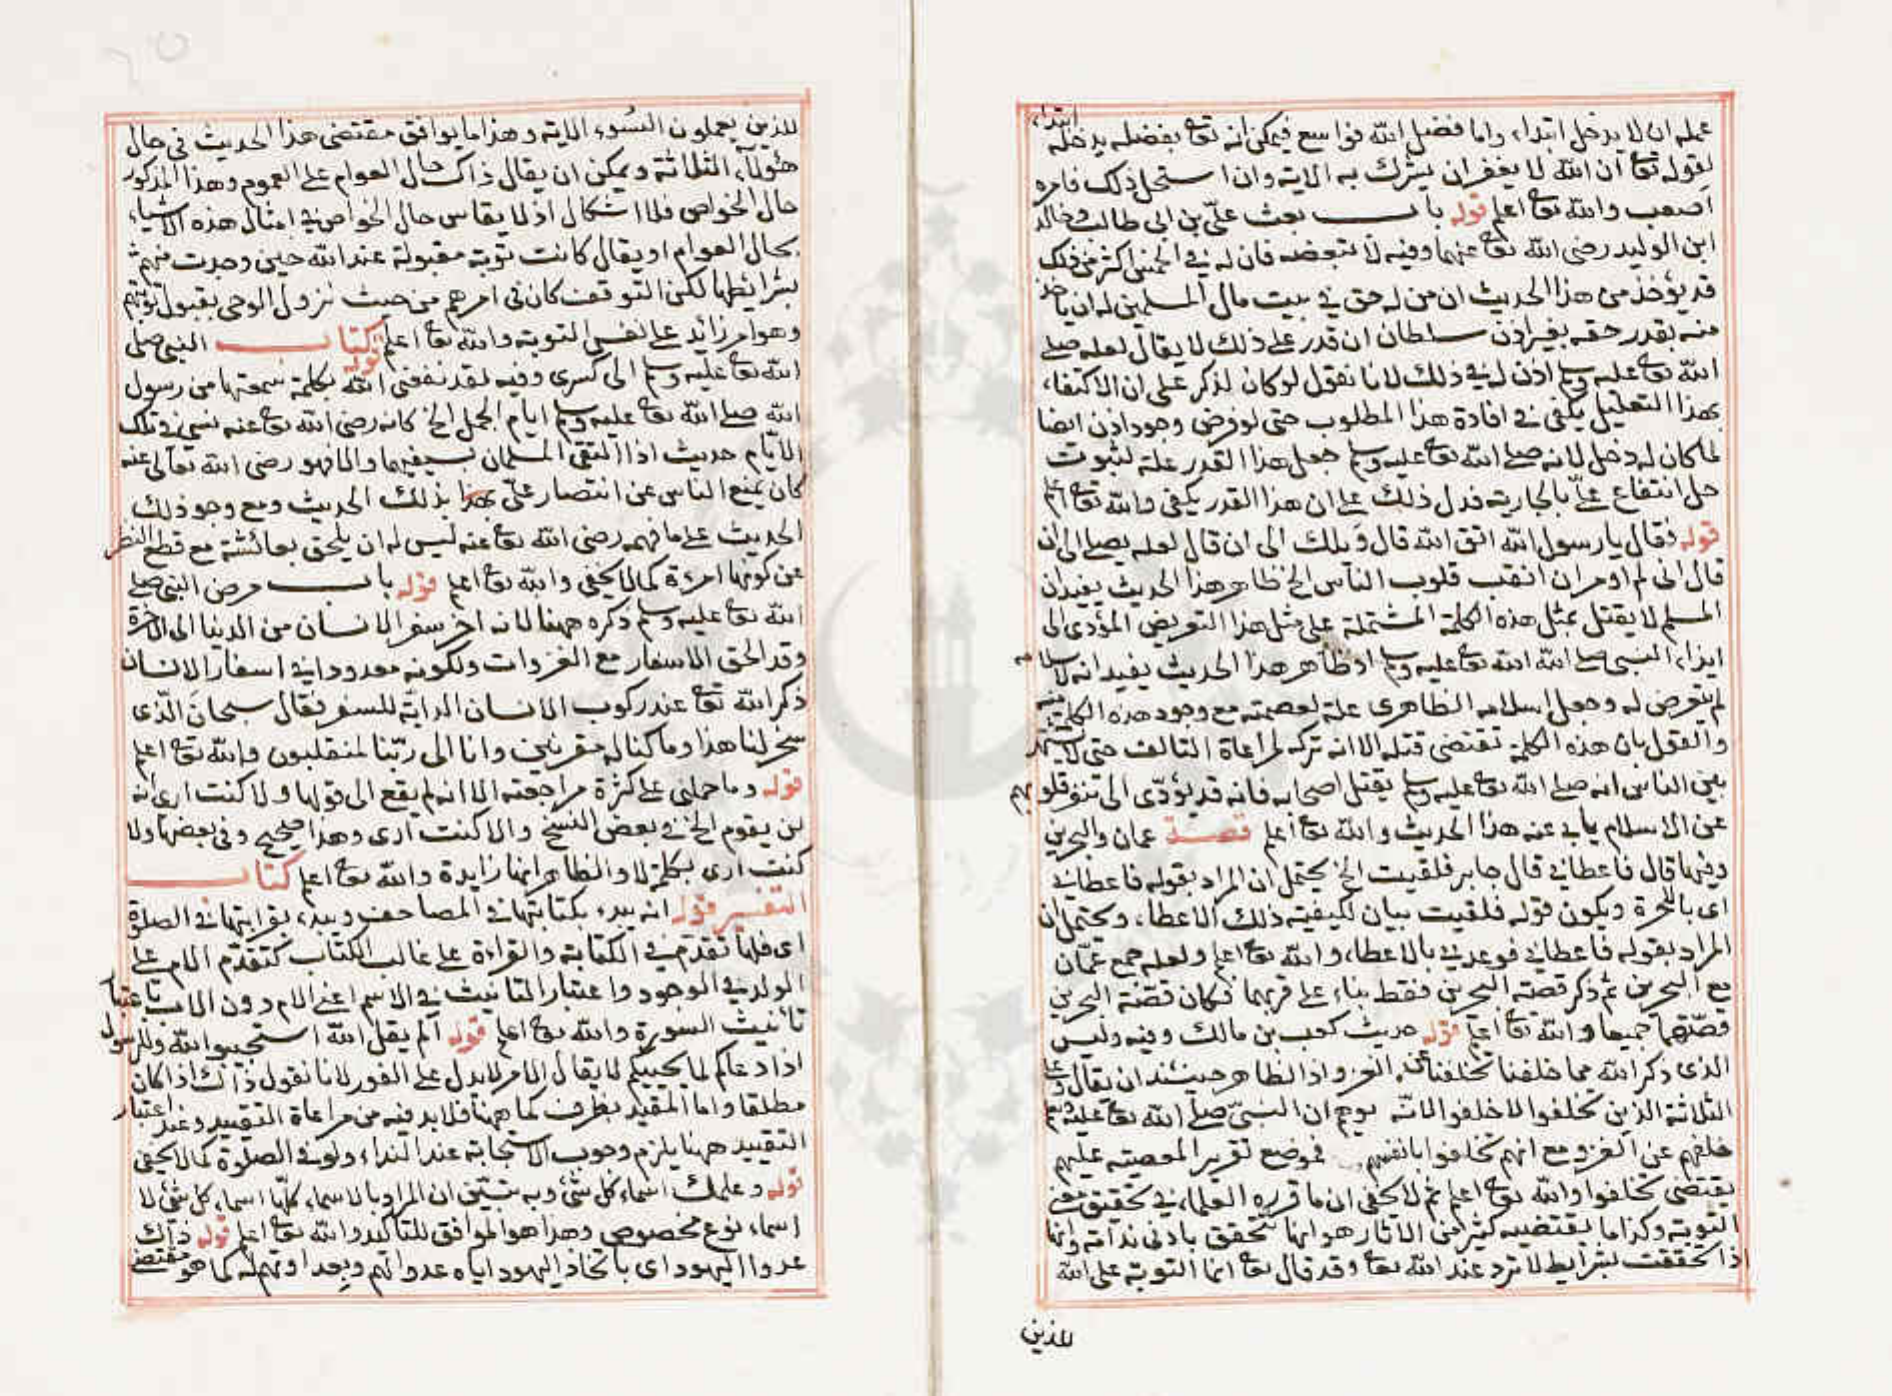 عمله ان لا يدخل ابتداء واما فضل الله فواسع فيمكن انه تعا بفضله يدخله ابتداء
لقوله تعا ان الله لا يغفر ان يشرك به الاية وان استحل ذلك فامره
اصعب والله تعا اعلم قوله باب بعث علي بن ابى طالب وخالد
ابن الوليد رضى الله تعا عنهما وفيه لا تبغضه فان له في الخمس اكثر من ذلك
قد يؤخذ من هذا الحديث ان من له حق في بيت مال المسلمين له ان ياخذ
منه بقدر حقه بغير اذن سلطان ان قدر على ذلك لا يقال لعله صلى
الله تعا عليه وسلم اذن له في ذلك لانا نقول لو كان لذكر على ان الاكتفاء
بهذا التعليل يكفى في افادة هذا المطلوب حتى لو فرض وجود اذن ايضا
لما كان له دخل لانه صلى الله تعا عليه وسلم جعل هذا القدر علة لثبوت
حل انتفاع علي بالجارية فدل ذلك على ان هذا القدر يكفى والله تعا اعلم
قوله فقال يا رسول الله اتق الله قال ويلك الى ان قال لعله يصلى الى ان
قال انى لم اومر ان انقب قلوب الناس الخ ظاهر هذا الحديث يفيد ان
المسلم لا يقتل بمثل هذه الكلمة المشتملة على مثل هذا التعريض المؤدى الى
ايذاء النبى صلى الله تعا عليه وسلم اذ ظاهر هذا الحديث يفيد انه لاسلامه
لم يتعرض له وجعل اسلامه الظاهرى علة لعصمته مع وجود هذه الكلمة منه
والقول بان هذه الكلمة تقتضى قتله الا انه تركه لمراعاة التالف حتى لا يشتهر
بين الناس انه صلى الله تعا عليه وسلم يقتل اصحابه فانه قد يؤدى الى تنفر قلوبهم
عن الاسلام يابى عنه هذا الحديث والله تعا اعلم قصة عمان والبحرين
وفيها قال فاعطانى قال جابر فلقيت الخ يحتمل ان المراد بقوله فاعطانى
اى بالاخرة ويكون قوله فلقيت بيان لكيفية ذلك الاعطاء ويحتمل ان
المراد بقوله فاعطانى فوعدنى بالاعطاء والله تعا اعلم ولعله جمع عمان
مع البحرين ثم ذكر قصة البحرين فقط بناء على قربهما فكان قصة البحرين
قصتهما جميعا والله تعا اعلم قوله حديث كعب بن مالك وفيه وليس
الذى ذكر الله مما خلفنا تخلفنا عن الغزو اذ الظاهر حينئذ ان يقال وعلى
الثلاثة الذين تخلفوا لا خلفوا لانه يوهم ان النبى صلى الله تعا عليه وسلم
خلفهم عن الغزو مع انهم تخلفوا بانفسهم فموضع تقرير المعصية عليهم
يقتضى تخلفوا والله تعا اعلم ثم لا يخفى ان ما قرره العلماء في تحقيق معنى
التوبة وكذا ما يقتضيه كثير من الآثار هو انها تتحقق بادنى ندامة وانها
اذا تحققت بشرايط لا ترد عند الله تعا وقد قال تعا انما التوبة على الله
للذين
للذين يعملون السوء الاية وهذا ما يوافق مقتضى هذا الحديث فى حال
هؤلاء الثلاثة ويمكن ان يقال ذاك حال العوام على العموم وهذا المذكور
حال الخواص فلا اشكال اذ لا يقاس حال الخواص في امثال هذه الاشياء
بحال العوام او يقال كانت توبة مقبولة عند الله حين وجدت منهم
بشرائطها لكن التوقف كان فى امرهم من حيث نزول الوحى بقبول توبتهم
وهو امر زائد على نفس التوبة والله تعا اعلم قوله كتاب النبى صلى
الله تعا عليه وسلم الى كسرى وفيه لقد نفعنى الله بكلمة سمعتها من رسول
الله صلى الله تعا عليه وسلم ايام الجمل الخ كانه رضى الله تعا عنه نسى في تلك
الايام حديث اذا التقى المسلمان بسيفيهما والا فهو رضى الله تعالى عنه
كان يمنع الناس عن انتصار على بهذا بذلك الحديث ومع وجود ذلك
الحديث على ما فهمه رضى الله تعا عنه ليس له ان يلحق بعائشة مع قطع النظر
عن كونها امرءة كما لا يخفى والله تعا اعلم قوله باب مرض النبى صلى
الله تعا عليه وسلم ذكره ههنا لانه اخر سفر الانسان من الدنيا الى الاخرة
وقد الحق الاسفار مع الغزوات ولكونه معدودا في اسفار الانسان
ذكر الله تعا عند ركوب الانسان الدابة للسفر فقال سبحان الذى
سخر لنا هذا وما كنا له مقرنين وانا الى ربنا لمنقلبون والله تعا اعلم
قوله وما حملنى على كثرة مراجعته الا انه لم يقع الى قولها ولا كنت ارى انه
لن يقوم الخ في بعض النسخ والا كنت ارى وهذا صحيح وفى بعضها ولا
كنت ارى بكلمة لا والظاهر انها زايدة والله تعا اعلم كتاب
التفسير قوله انه يبدء بكتابتها فى المصاحف ويبدء بقرائتها فى الصلوة
اى فلما تقدم في الكتابة والقراءة على غالب الكتاب كتقدم الام على
الولد في الوجود واعتبار التانيث في الاسم اعنى الام دون الاب باعتبار
تأنيث السورة والله تعا اعلم قوله الم يقل الله استجيبوا لله وللرسول
اذا دعاكم لما يحييكم لا يقال الامر لا يدل على الفور لانا نقول ذاك اذا كان
مطلقا واما المقيد بظرف كما ههنا فلا بد فيه من مراعاة التقييد وعند اعتبار
التقييد ههنا يلزم وجوب الاستجابة عند النداء ولو في الصلوة كما لا يخفى
قوله وعلمك اسماء كل شئ وبه تبين ان المراد بالاسماء كلها اسماء كل شئ لا
اسماء نوع مخصوص وهذا هو الموافق للتاكيد والله تعا اعلم قوله ذاك
عدوا اليهود اى باتخاذ اليهود اياه عدوا لهم وبعداوتهم له كما هو مقتضى